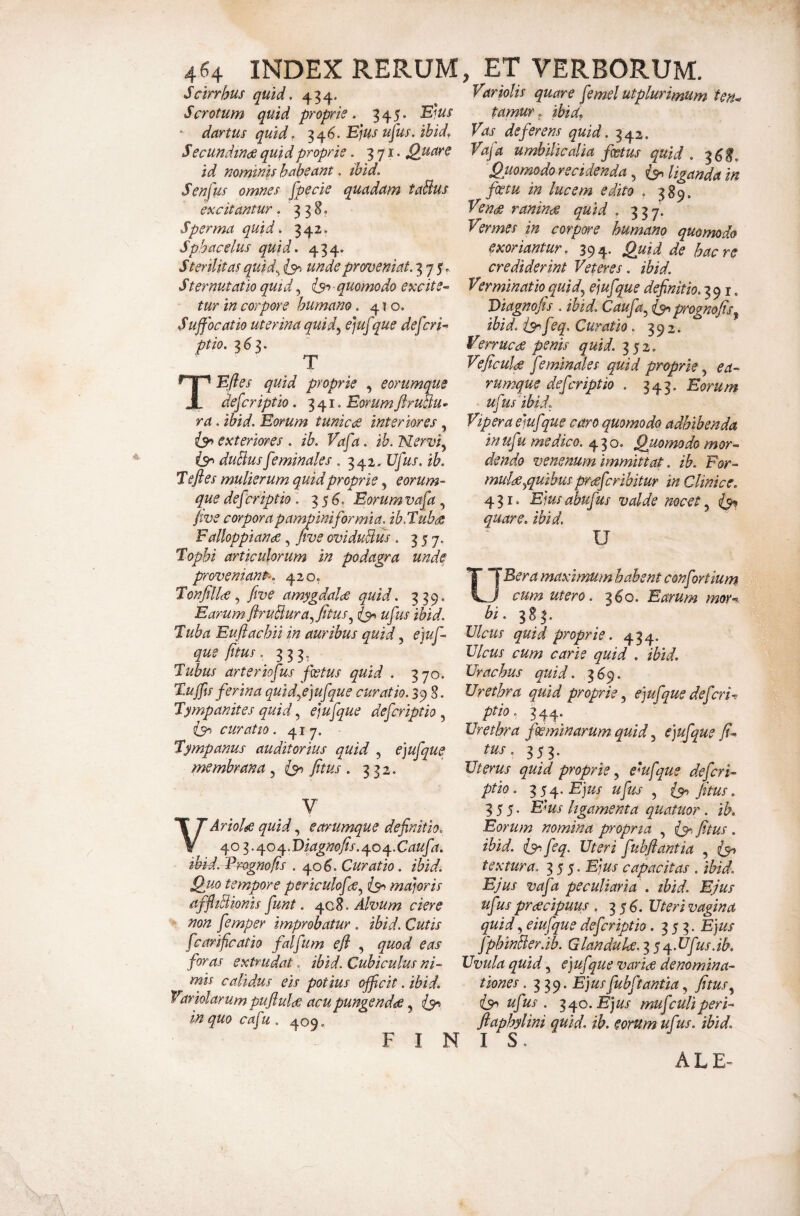 464 INDEX RERUM, ET VERBORUM.
Scirrhus quid. 434.
Scrotum quid proprie. 345. Ejus
dartus quid. 346. Ejus usus. ibid.
Secundinæ quid proprie. 371. Quare
id nominis habeant. ibid.
Sensus omnes specie quadam tactus
excitantur. 338.
Sperma quid. 342.
Sphacelus quid. 434.
Sterilitas quid, & unde proveniat. 375.
Sternutatio quid, & quomodo excite-
tur in corpore humano. 410.
Suffocatio uterina quid, ejusque descri-
ptio. 363.
T
TEstes quid proprie, eorumque
descriptio. 341. Eorum structu-
ra. ibid. Eorum tunicæ interiores,
& exteriores. ib. Vasa. ib. Nervi,
& ductus seminales. 342. Usus. ib.
Testes mulierum quid proprie, eorum-
que descriptio. 356. Eorum vasa,
sive corpora pampiniformia. ib. Tubæ
Falloppianæ, sive oviductus. 357.
Tophi articulorum in podagra unde
proveniant. 420.
Tonsillæ, sive amygdalæ quid. 339.
Earum structura, situs, & usus ibid.
Tuba Eustachii in auribus quid, ejus-
que situs. 333.
Tubus arteriosus fœtus quid. 370.
Tussis ferina quid, ejusque curatio. 398.
Tympanites quid, ejusque descriptio,
& curatio. 417.
Tympanus auditorius quid, ejusque
membrana, & situs. 332.
V
VAriolæ quid, earumque definitio.
403. 404. Diagnosis. 404. Causa.
ibid. Prognosis. 406. Curatio. ibid.
Quo tempore periculosæ, & majoris
afflictionis sunt. 408. Alvum ciere
non semper improbatur. ibid. Cutis
scarificatio falsum est, quod eas
foras extrudat. ibid. Cubiculus ni-
mis calidus eis potius officit. ibid.
Variolarum pustulæ acu pungendæ, &
in quo casu. 409.
Variolis quare semel utplurimum ten-
tamur. ibid.
Vas deferens quid. 342.
Vasa umbilicalia fœtus quid. 368.
Quomodo recidenda, & liganda in
fœtu in lucem edito. 389.
Venæ raninæ quid. 337.
Vermes in corpore humano quomodo
exoriantur. 394. Quid de hac re
crediderint Veteres. ibid.
Verminatio quid, ejusque definitio. 391.
Diagnosis. ibid. Causa, & prognosis,
ibid. & seq. Curatio. 392.
Verrucæ penis quid. 352.
Vesiculæ seminales quid proprie, ea-
rumque descriptio. 343. Eorum
usus ibid.
Vipera ejusque caro quomodo adhibenda
in usu medico. 430. Quomodo mor-
dendo venenum immittat. ib. For-
mulæ, quibus præscribitur in Clinice.
431. Ejus abusus valde nocet, &
quare. ibid.
U
UBera maximum habent consortium
cum utero. 360. Earum mor-
bi. 383.
Ulcus quid proprie. 434.
Ulcus cum carie quid. ibid.
Urachus quid. 369.
Urethra quid proprie, ejusque descri-
ptio. 344.
Urethra fœminarum quid, ejusque si-
tus. 353.
Uterus quid proprie, ejusque descri-
ptio. 354. Ejus usus, & situs.
355. Ejus ligamenta quatuor. ib.
Eorum nomina propria, & situs.
ibid. & seq. Uteri substantia, &
textura. 355. Ejus capacitas. ibid.
Ejus vasa peculiaria. ibid. Ejus
usus præcipuus. 356. Uteri vagina
quid, eiusque descriptio. 353. Ejus
sphincter. ib. Glandulæ. 354. Usus. ib.
Uvula quid, ejusque variæ denomina-
tiones. 339. Ejus substantia, situs,
& usus. 340. Ejus musculi peri-
staphylini quid. ib. eorum usus. ibid.
FINIS.
ALE-